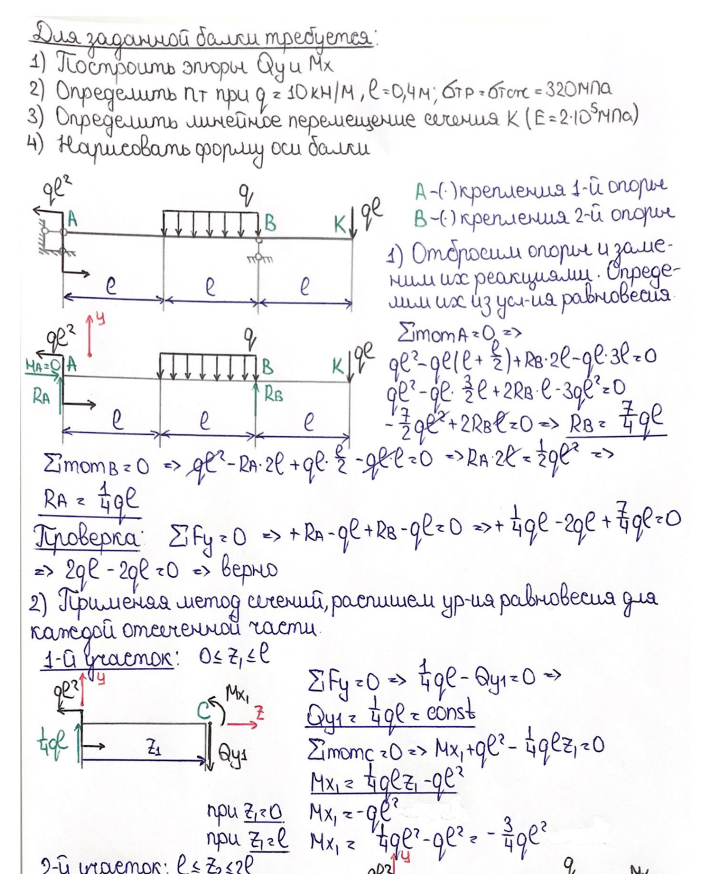 Для заданной балки требуется:
1) Построить эпюры Qy и Mx
2) Определить nт при q = 10 кН/м, l = 0,4м; σтр = σтсж = 320МПа
3) Определить линейное перемещение сечения K (E = 2·10⁵МПа)
4) Нарисовать форму оси балки
ql² A q B K ql
l l l
A -(·) крепления 1-й опоры
B -(·) крепления 2-й опоры
1) Отбросим опоры и заме-
ним их реакциями. Опреде-
лим их из усл-ия равновесия
y
ql² q ql
HA=0 A B K
RA RB
l l l
ΣmomA = 0 =>
ql² - ql(l + l/2) + RB·2l - ql·3l = 0
ql² - ql·3/2l + 2RB·l - 3ql² = 0
-7/2ql² + 2RBl = 0 => RB = 7/4ql
ΣmomB = 0 => ql² - RA·2l + ql·l/2 - ql·l = 0 => RA·2l = 1/2ql² =>
RA = 1/4ql
Проверка: ΣFy = 0 => + RA - ql + RB - ql = 0 => + 1/4ql - 2ql + 7/4ql = 0
=> 2ql - 2ql = 0 => верно
2) Применяя метод сечений, распишем ур-ия равновесия для
каждой отсеченной части.
1-й участок: 0 ≤ z₁ ≤ l
ql² y C Mx₁ z
1/4ql z₁ Qy₁
ΣFy = 0 => 1/4ql - Qy₁ = 0 =>
Qy₁ = 1/4ql = const
Σmomc = 0 => Mx₁ + ql² - 1/4qlz₁ = 0
Mx₁ = 1/4qlz₁ - ql²
при z₁=0 Mx₁ = -ql²
при z₁=l Mx₁ = 1/4ql² - ql² = -3/4ql²
2-й участок: l ≤ z₂ ≤ 2l
y q